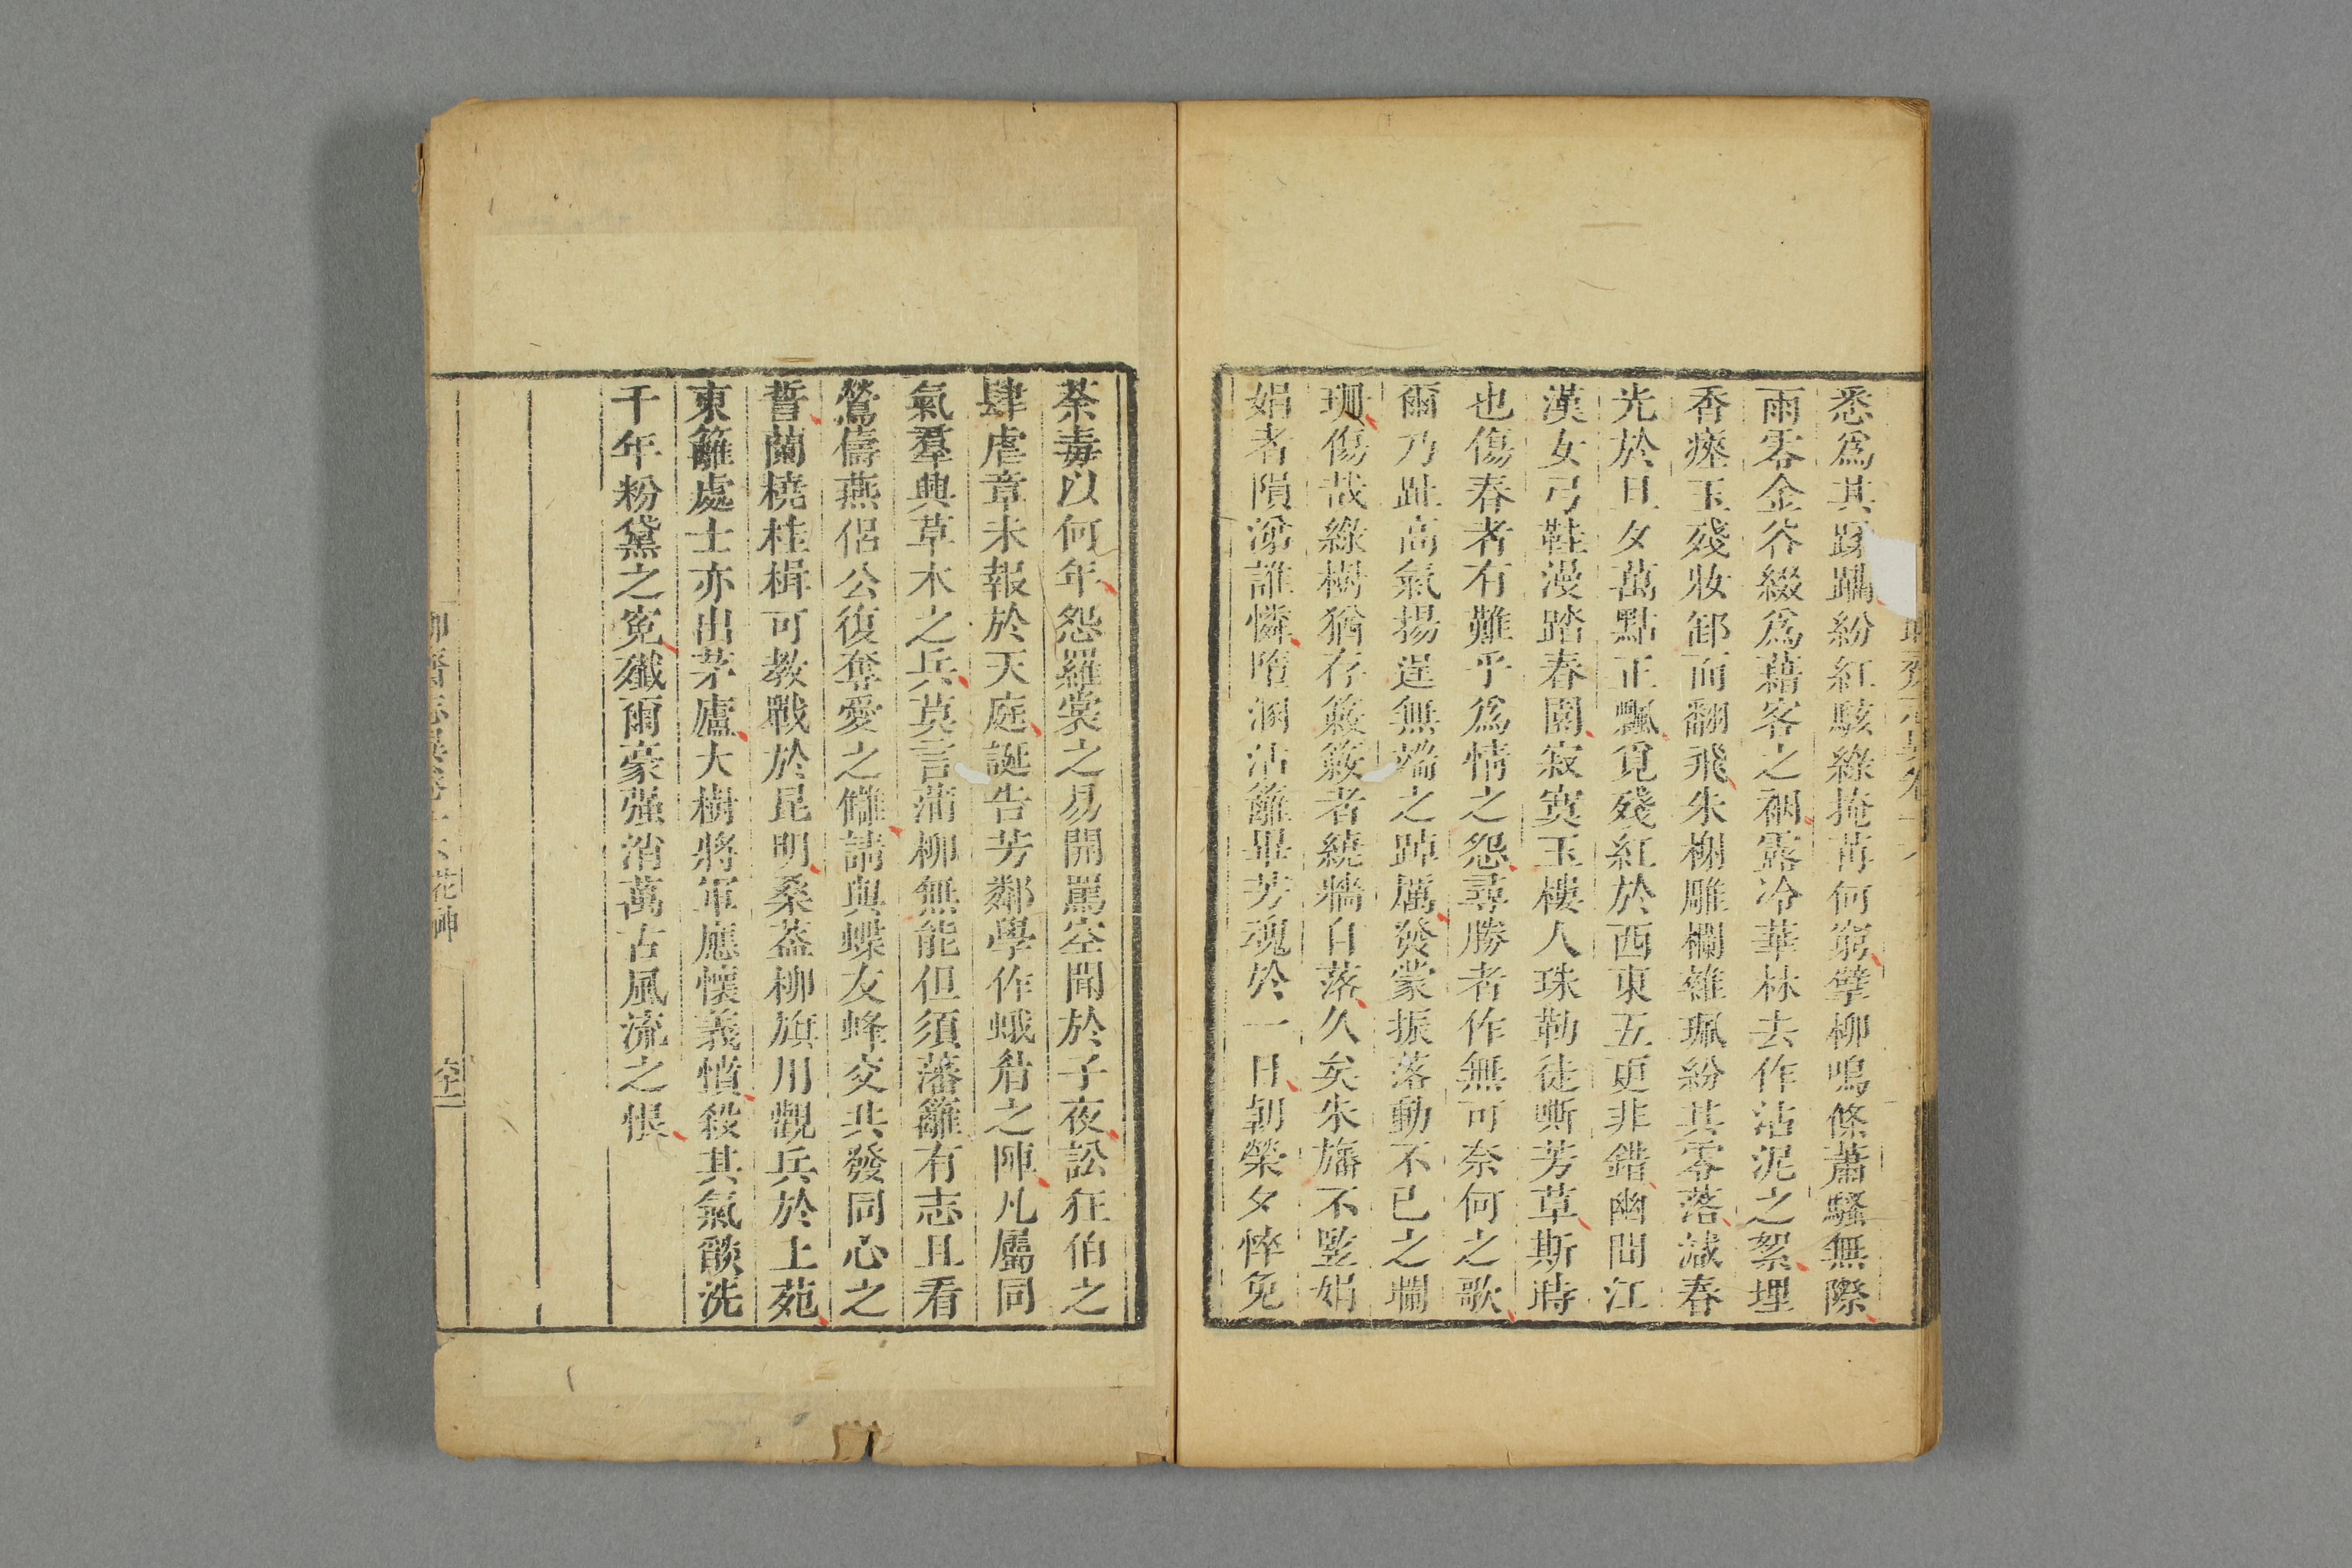 悉爲其蹂躪紛紅駭綠掩苒何窮擘柳鳴條蕭騷無際
雨零金谷綴爲藉客之裀露冷華林去作沾泥之絮埋
香瘞玉殘妝卸而翻飛朱榭雕欄雜珮紛其零落減春
光於旦夕萬點正飄覓殘紅於西東五更非錯幽間江
漢女弓鞋漫踏春園寂寞玉樓人珠勒徒嘶芳草斯時
也傷春者有難乎爲情之怨尋勝者作無可奈何之歌
爾乃趾高氣揚逞無端之踔厲發蒙振落動不已之瓓
珊傷哉綠樹猶存簌簌者繞牆自落久矣朱旛不竪娟
娟者隕涕誰憐墮溷沾籬畢芳魂於一日朝榮夕悴免
荼毒以何年怨羅裳之易開罵空聞於子夜訟狂伯之
肆虐章未報於天庭誕告芳鄰學作蛾眉之陣凡屬同
氣羣興草木之兵莫言蒲柳無能但須藩籬有志且看
鶯儔燕侶公復奪愛之讎請與蝶友蜂交共發同心之
誓蘭橈桂楫可教戰於昆明桑葢柳旗用觀兵於上苑
東籬處士亦出茅廬大樹將軍應懷義憤殺其氣燄洗
千年粉黛之冤殲爾豪强消萬古風流之恨